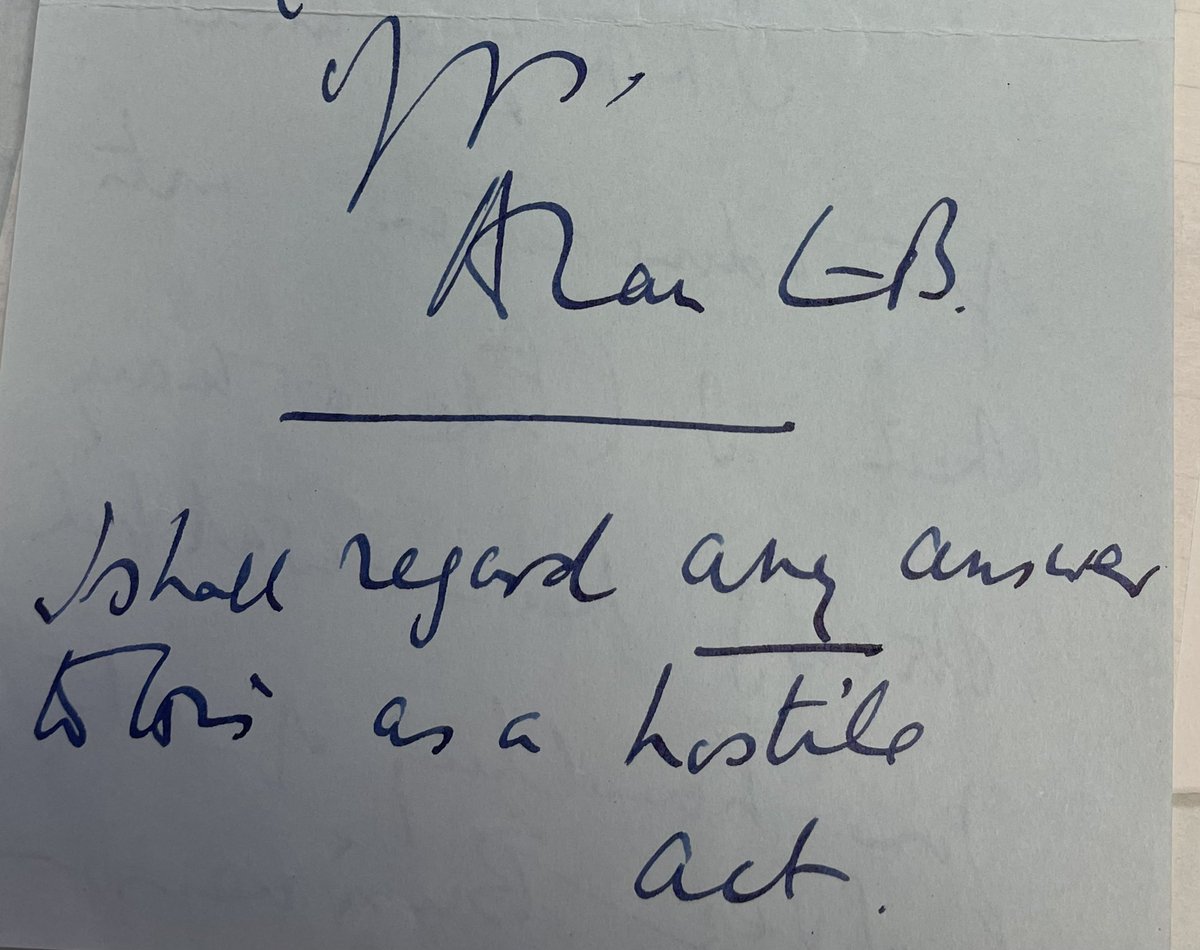 Alan L-B.
I shall regard any answer
to this as a hostile
act.